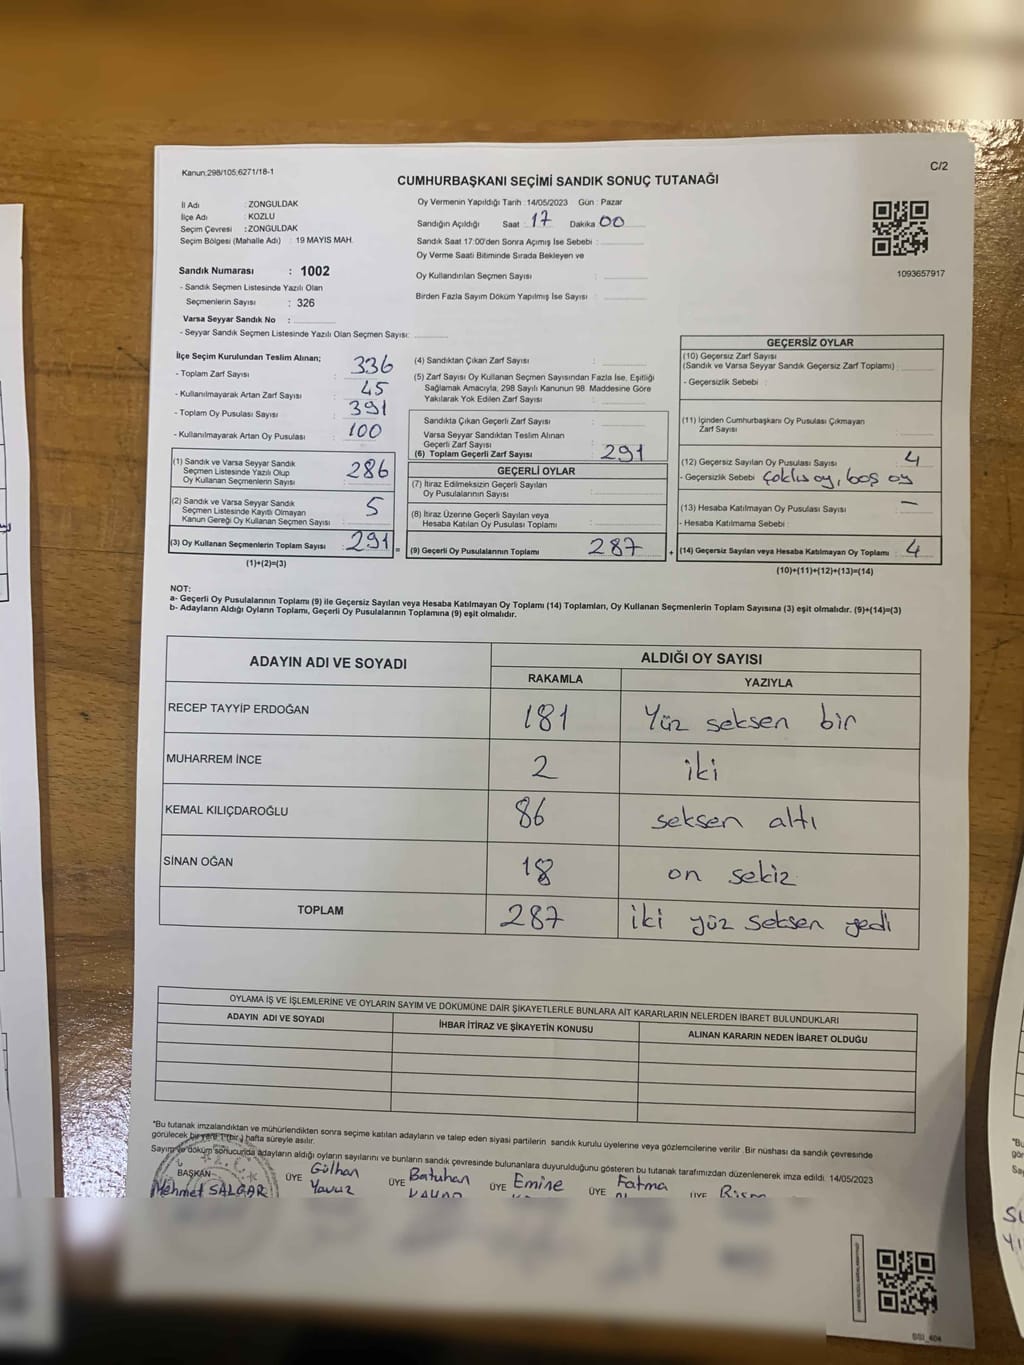 Kanun:298/105;6271/18-1
C/2
CUMHURBAŞKANI SEÇİMİ SANDIK SONUÇ TUTANAĞI
İl Adı : ZONGULDAK
İlçe Adı : KOZLU
Seçim Çevresi : ZONGULDAK
Seçim Bölgesi (Mahalle Adı) : 19 MAYIS MAH.
Sandık Numarası : 1002
- Sandık Seçmen Listesinde Yazılı Olan
Seçmenlerin Sayısı : 326
Varsa Seyyar Sandık No :
- Seyyar Sandık Seçmen Listesinde Yazılı Olan Seçmen Sayısı:
Oy Vermenin Yapıldığı Tarih :14/05/2023 Gün : Pazar
Sandığın Açıldığı Saat : 17 Dakika 00
Sandık Saat 17:00'den Sonra Açımış İse Sebebi :
Oy Verme Saati Bitiminde Sırada Bekleyen ve
Oy Kullandırılan Seçmen Sayısı :
Birden Fazla Sayım Döküm Yapılmış İse Sayısı :
1093657917
İlçe Seçim Kurulundan Teslim Alınan;
- Toplam Zarf Sayısı : 336
- Kullanılmayarak Artan Zarf Sayısı : 45
- Toplam Oy Pusulası Sayısı : 391
- Kullanılmayarak Artan Oy Pusulası : 100
(1) Sandık ve Varsa Seyyar Sandık
Seçmen Listesinde Yazılı Olup
Oy Kullanan Seçmenlerin Sayısı : 286
(2) Sandık ve Varsa Seyyar Sandık
Seçmen Listesinde Kayıtlı Olmayan
Kanun Gereği Oy Kullanan Seçmen Sayısı : 5
(3) Oy Kullanan Seçmenlerin Toplam Sayısı : 291
(1)+(2)=(3)
(4) Sandıktan Çıkan Zarf Sayısı :
(5) Zarf Sayısı Oy Kullanan Seçmen Sayısından Fazla İse, Eşitliği
Sağlamak Amacıyla, 298 Sayılı Kanunun 98. Maddesine Göre
Yakılarak Yok Edilen Zarf Sayısı :
Sandıkta Çıkan Geçerli Zarf Sayısı :
Varsa Seyyar Sandıktan Teslim Alınan
Geçerli Zarf Sayısı :
(6) Toplam Geçerli Zarf Sayısı : 291
GEÇERLİ OYLAR
(7) İtiraz Edilmeksizin Geçerli Sayılan
Oy Pusulalarının Sayısı :
(8) İtiraz Üzerine Geçerli Sayılan veya
Hesaba Katılan Oy Pusulası Toplamı :
= (9) Geçerli Oy Pusulalarının Toplamı : 287
GEÇERSİZ OYLAR
(10) Geçersiz Zarf Sayısı
(Sandık ve Varsa Seyyar Sandık Geçersiz Zarf Toplamı) :
- Geçersizlik Sebebi :
(11) İçinden Cumhurbaşkanı Oy Pusulası Çıkmayan
Zarf Sayısı :
(12) Geçersiz Sayılan Oy Pusulası Sayısı : 4
- Geçersizlik Sebebi : Çoklu oy, boş oy
(13) Hesaba Katılmayan Oy Pusulası Sayısı : —
- Hesaba Katılmama Sebebi :
+ (14) Geçersiz Sayılan veya Hesaba Katılmayan Oy Toplamı : 4
(10)+(11)+(12)+(13)=(14)
NOT:
a- Geçerli Oy Pusulalarının Toplamı (9) ile Geçersiz Sayılan veya Hesaba Katılmayan Oy Toplamı (14) Toplamları, Oy Kullanan Seçmenlerin Toplam Sayısına (3) eşit olmalıdır. (9)+(14)=(3)
b- Adayların Aldığı Oyların Toplamı, Geçerli Oy Pusulalarının Toplamına (9) eşit olmalıdır.
ADAYIN ADI VE SOYADI ALDIĞI OY SAYISI
RAKAMLA YAZIYLA
RECEP TAYYİP ERDOĞAN 181 Yüz seksen bir
MUHARREM İNCE 2 iki
KEMAL KILIÇDAROĞLU 86 seksen altı
SİNAN OĞAN 18 on sekiz
TOPLAM 287 iki yüz seksen yedi
OYLAMA İŞ VE İŞLEMLERİNE VE OYLARIN SAYIM VE DÖKÜMÜNE DAİR ŞİKAYETLERLE BUNLARA AİT KARARLARIN NELERDEN İBARET BULUNDUKLARI
ADAYIN ADI VE SOYADI İHBAR İTİRAZ VE ŞİKAYETİN KONUSU ALINAN KARARIN NEDEN İBARET OLDUĞU
*Bu tutanak imzalandıktan ve mühürlendikten sonra seçime katılan adayların ve talep eden siyasi partilerin sandık kurulu üyelerine veya gözlemcilerine verilir .Bir nüshası da sandık çevresinde
görülecek bir yere 1 (bir ) hafta süreyle asılır.
Sayım ve döküm sonucunda adayların aldığı oyların sayılarını ve bunların sandık çevresinde bulunanlara duyurulduğunu gösteren bu tutanak tarafımızdan düzenlenerek imza edildi. 14/05/2023
BAŞKAN ÜYE Gülhan ÜYE Batuhan ÜYE Emine ÜYE Fatma ÜYE
Mehmet SALGAR Yavuz
SSI_404